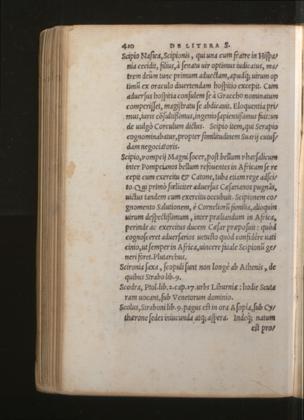 410 DE LITERA S.
Scipio Nasica, Scipionis, qui una cum fratre in Hispa
nia cecidit, filius, à senatu uir optimus iudicatus, ma
trem deûm tunc primum aduectam, apudq; uirum opti
mũ ex oraculo diuertendam hospitio excepit. Cum
aduersus hospitia consulem se à Graccho nominatum
comperisset, magistratu se abdicauit. Eloquentia pri
mus, iuris cõsultissimus, ingenio sapientissimus fuit: un
de uulgò Corculum dictus. Scipio item, qui Serapio
cognominabatur, propter similitudinem Suarij cuius
dam negociatoris.
Scipio, pompeij Magni socer, post bellum pharsalicum
inter Pompeianos bellum resouentes in Africam se re
cepit cum exercitu & Catone, Iuba etiam rege adsci
to. Qui primò fœliciter aduersus Cæsarianos pugnãs,
uictus tandem cum exercitu occubuit. Scipionem co
gnomento Salutionem, è Corneliorũ familia, alioquin
uirum despectissimum, inter præliandum in Africa,
perinde ac exercitus ducem Cæsar præposuit: quòd
cognosceret aduersarios uetusto quodã confidere uati
cinio, ut semper in Africa, uincere fatale Scipionũ ge
neri foret. Plutarchus.
Scironia saxa, scopuli sunt non longè ab Athenis, de
quibus Strabo lib. 9.
Scodra, Ptol. lib. 2. cap. 17. urbs Liburniæ: hodie Scuta
ram uocant, sub Venetorum dominio.
Scolus, Straboni lib. 9. pagus est in ora Asopia, sub Cy
thærone sedes iniucunda atq; aspera. Indeq; natum
est pro/